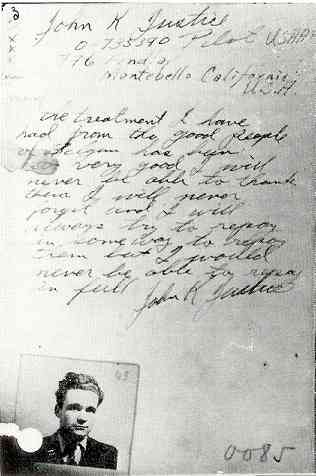 3
John K Justice
0 735390 Pilot USAAF
776 Findlay
Montebello California
U.S.A.
The treatment I have
had from the good people
of has been
very good I will
never be able to thank
them I will never
forget and I will
always try to repay
in some way to repay
them but I would
never be able to repay
in full
John K Justice
43
0085